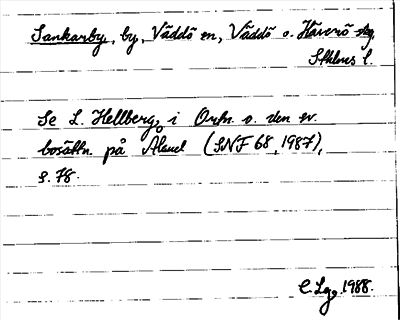 Sankarby, by, Väddö sn, Väddö o. Häverö skg,
Sthlms l.
Se L. Hellberg, i Ortn. o. den sv.
bosättn. på Åland (SNF 68, 1987),
s. 78.
1988.